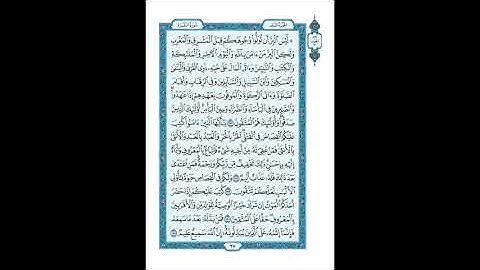 سُورَةُ البَقَرَةِ
الجُزْءُ الثَّانِي
۞ لَّيْسَ ٱلْبِرَّ أَن تُوَلُّوا۟ وُجُوهَكُمْ قِبَلَ ٱلْمَشْرِقِ وَٱلْمَغْرِبِ
وَلَٰكِنَّ ٱلْبِرَّ مَنْ ءَامَنَ بِٱللَّهِ وَٱلْيَوْمِ ٱلْءَاخِرِ وَٱلْمَلَٰٓئِكَةِ
وَٱلْكِتَٰبِ وَٱلنَّبِيِّۦنَ وَءَاتَى ٱلْمَالَ عَلَىٰ حُبِّهِۦ ذَوِى ٱلْقُرْبَىٰ وَٱلْيَتَٰمَىٰ
وَٱلْمَسَٰكِينَ وَٱبْنَ ٱلسَّبِيلِ وَٱلسَّآئِلِينَ وَفِى ٱلرِّقَابِ وَأَقَامَ
ٱلصَّلَوٰةَ وَءَاتَى ٱلزَّكَوٰةَ وَٱلْمُوفُونَ بِعَهْدِهِمْ إِذَا عَٰهَدُوا۟
وَٱلصَّٰبِرِينَ فِى ٱلْبَأْسَآءِ وَٱلضَّرَّآءِ وَحِينَ ٱلْبَأْسِ أُو۟لَٰٓئِكَ ٱلَّذِينَ
صَدَقُوا۟ وَأُو۟لَٰٓئِكَ هُمُ ٱلْمُتَّقُونَ ١٧٧ يَٰٓأَيُّهَا ٱلَّذِينَ ءَامَنُوا۟ كُتِبَ
عَلَيْكُمُ ٱلْقِصَاصُ فِى ٱلْقَتْلَى ٱلْحُرُّ بِٱلْحُرِّ وَٱلْعَبْدُ بِٱلْعَبْدِ وَٱلْأُنثَىٰ
بِٱلْأُنثَىٰ فَمَنْ عُفِىَ لَهُۥ مِنْ أَخِيهِ شَىْءٌ فَٱتِّبَاعٌۢ بِٱلْمَعْرُوفِ وَأَدَآءٌ
إِلَيْهِ بِإِحْسَٰنٍ ذَٰلِكَ تَخْفِيفٌ مِّن رَّبِّكُمْ وَرَحْمَةٌ فَمَنِ ٱعْتَدَىٰ
بَعْدَ ذَٰلِكَ فَلَهُۥ عَذَابٌ أَلِيمٌ ١٧٨ وَلَكُمْ فِى ٱلْقِصَاصِ حَيَوٰةٌ يَٰٓأُو۟لِى
ٱلْأَلْبَٰبِ لَعَلَّكُمْ تَتَّقُونَ ١٧٩ كُتِبَ عَلَيْكُمْ إِذَا حَضَرَ
أَحَدَكُمُ ٱلْمَوْتُ إِن تَرَكَ خَيْرًا ٱلْوَصِيَّةُ لِلْوَٰلِدَيْنِ وَٱلْأَقْرَبِينَ
بِٱلْمَعْرُوفِ حَقًّا عَلَى ٱلْمُتَّقِينَ ١٨٠ فَمَنۢ بَدَّلَهُۥ بَعْدَ مَا سَمِعَهُۥ
فَإِنَّمَآ إِثْمُهُۥ عَلَى ٱلَّذِينَ يُبَدِّلُونَهُۥٓ إِنَّ ٱللَّهَ سَمِيعٌ عَلِيمٌ ١٨١
٢٧